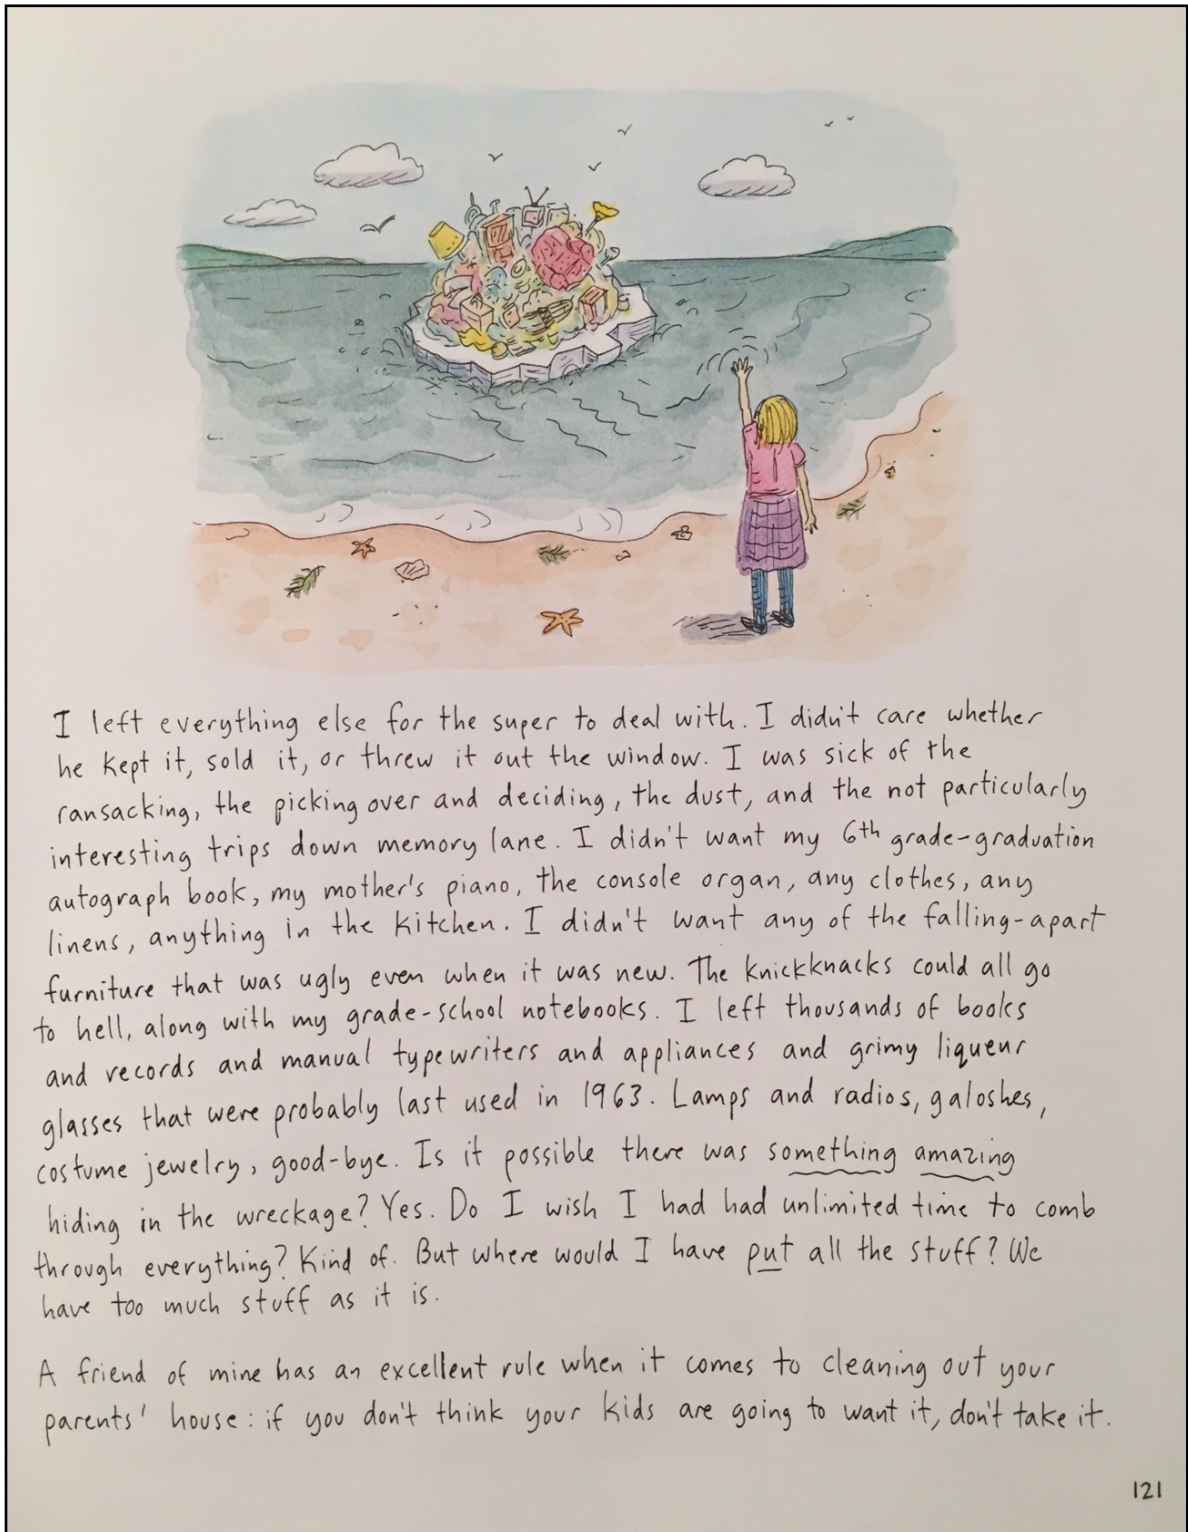 I left everything else for the super to deal with. I didn't care whether
he kept it, sold it, or threw it out the window. I was sick of the
ransacking, the picking over and deciding, the dust, and the not particularly
interesting trips down memory lane. I didn't want my 6th grade-graduation
autograph book, my mother's piano, the console organ, any clothes, any
linens, anything in the kitchen. I didn't want any of the falling-apart
furniture that was ugly even when it was new. The knickknacks could all go
to hell, along with my grade-school notebooks. I left thousands of books
and records and manual typewriters and appliances and grimy liqueur
glasses that were probably last used in 1963. Lamps and radios, galoshes,
costume jewelry, good-bye. Is it possible there was something amazing
hiding in the wreckage? Yes. Do I wish I had had unlimited time to comb
through everything? Kind of. But where would I have put all the stuff? We
have too much stuff as it is.
A friend of mine has an excellent rule when it comes to cleaning out your
parents' house: if you don't think your kids are going to want it, don't take it.
121